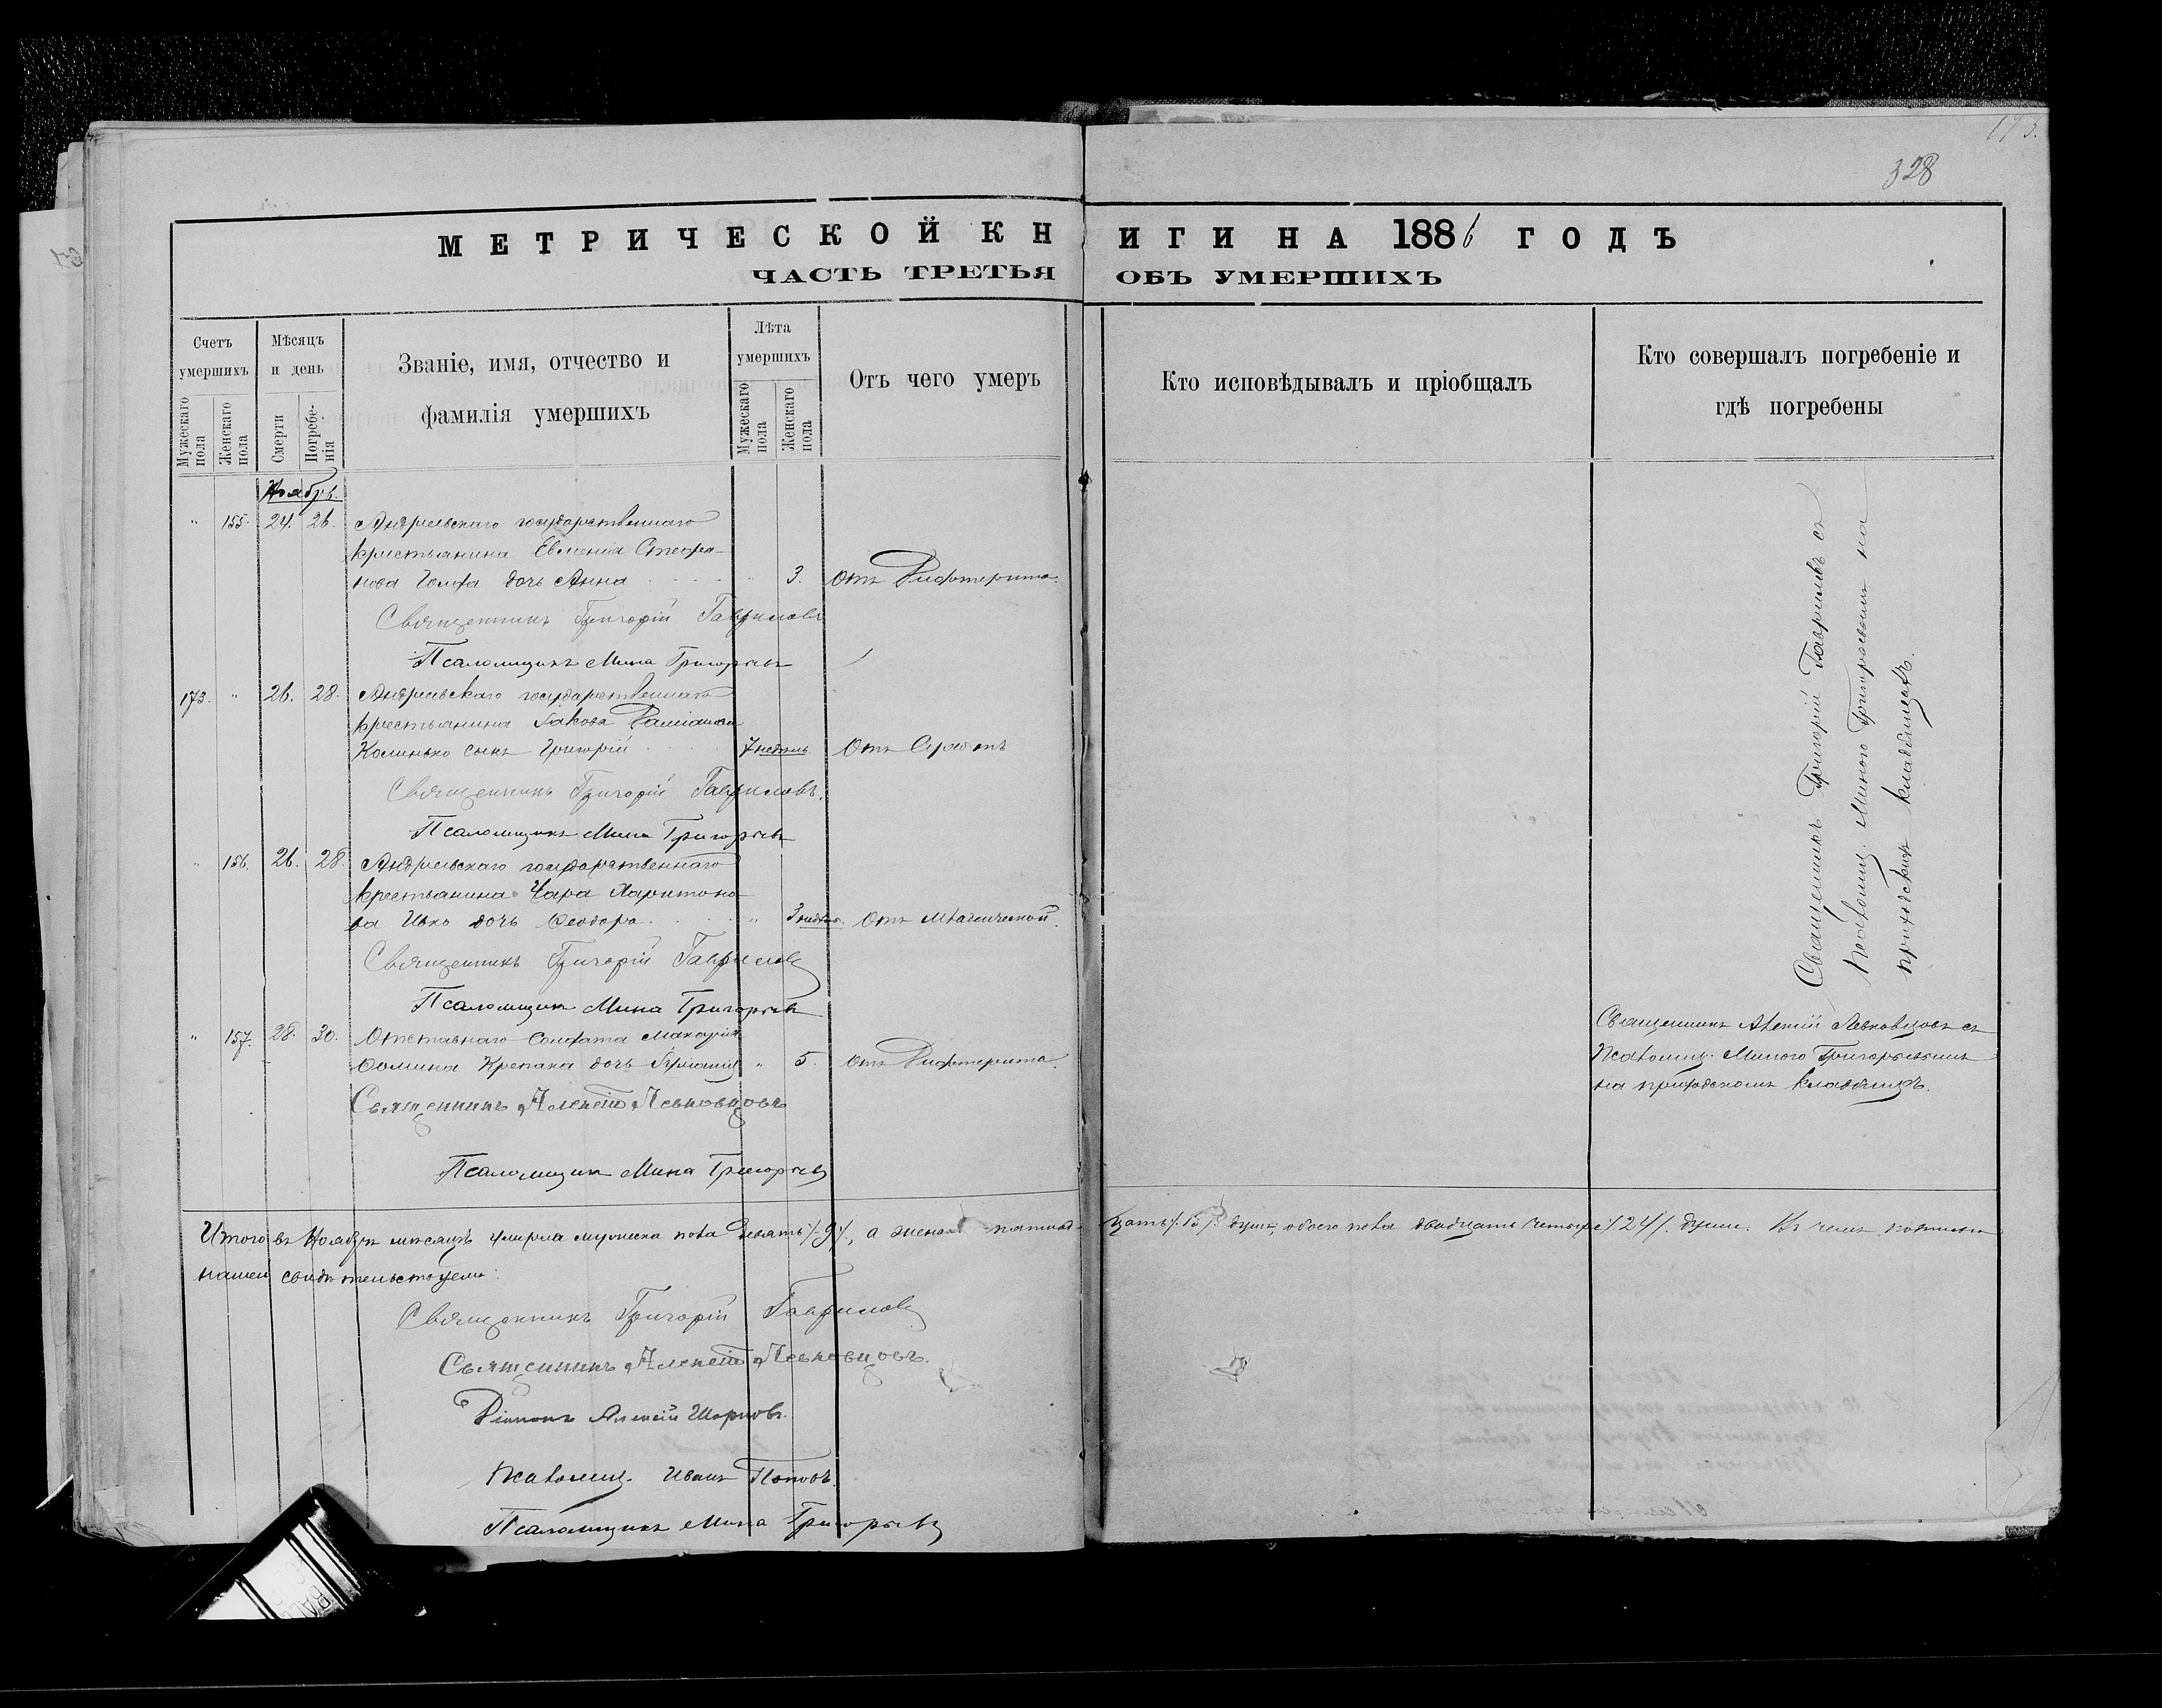 328
МЕТРИЧЕСКОЙ КНИГИ НА 1886 ГОДЪ
ЧАСТЬ ТРЕТЬЯ ОБЪ УМЕРШИХЪ
Счетъ умершихъ
Мужескаго пола
Женскаго пола
Мѣсяцъ и день
Смерти
Погребенія
Званіе, имя, отчество и
фамилія умершихъ
Лѣта умершихъ
Мужескаго пола
Женскаго пола
Отъ чего умеръ
Кто исповѣдывалъ и пріобщалъ
Кто совершалъ погребеніе и
гдѣ погребены
Ноябрь.
" 155. 24. 26. Андреевскаго государственнаго
крестьянина Евменія Стефа-
нова дочь Анна " 3. Отъ Дифтерита.
Священникъ Григорій Гавриловъ
Псаломщикъ Мина Григорьевъ
173. " 26. 28. Андреевскаго государственнаго
крестьянина Іакова Даміанова
сынъ Григорій 7 недѣль Отъ
Священникъ Григорій Гавриловъ.
Псаломщикъ Мина Григорьевъ
" 156. 26. 28. Андреевскаго государственнаго
крестьянина Харитоно-
ва дочь Ѳеодора " 3 недѣл. Отъ Младенческой.
Священникъ Григорій Гавриловъ
Псаломщикъ Мина Григорьевъ
" 157. 28. 30. Отставнаго Солдата Макарія
Ѳомина дочь " 5. Отъ Дифтерита.
Священникъ Алексій Левковцовъ
Псаломщикъ Мина Григорьевъ
Священникъ Григорій Гавриловъ съ
Псаломщ. Миною Григорьевымъ на
приходскихъ кладбищахъ.
Священникъ Алексій Левковцовъ съ
Псаломщ. Миною Григорьевымъ
на приходскомъ кладбищѣ.
Итого въ Ноябрѣ мѣсяцѣ умерло мужеска пола девять /.9/., а женска пятнад-цать /.15/. душъ, обоего пола двадцать четыре /.24/. души. Въ чемъ подписомъ
нашимъ свидѣтельствуемъ:
Священникъ Григорій Гавриловъ
Священникъ Алексій Левковцовъ.
Діаконъ Алексій
Псаломщ. Иванъ Поповъ.
Псаломщикъ Мина Григорьевъ